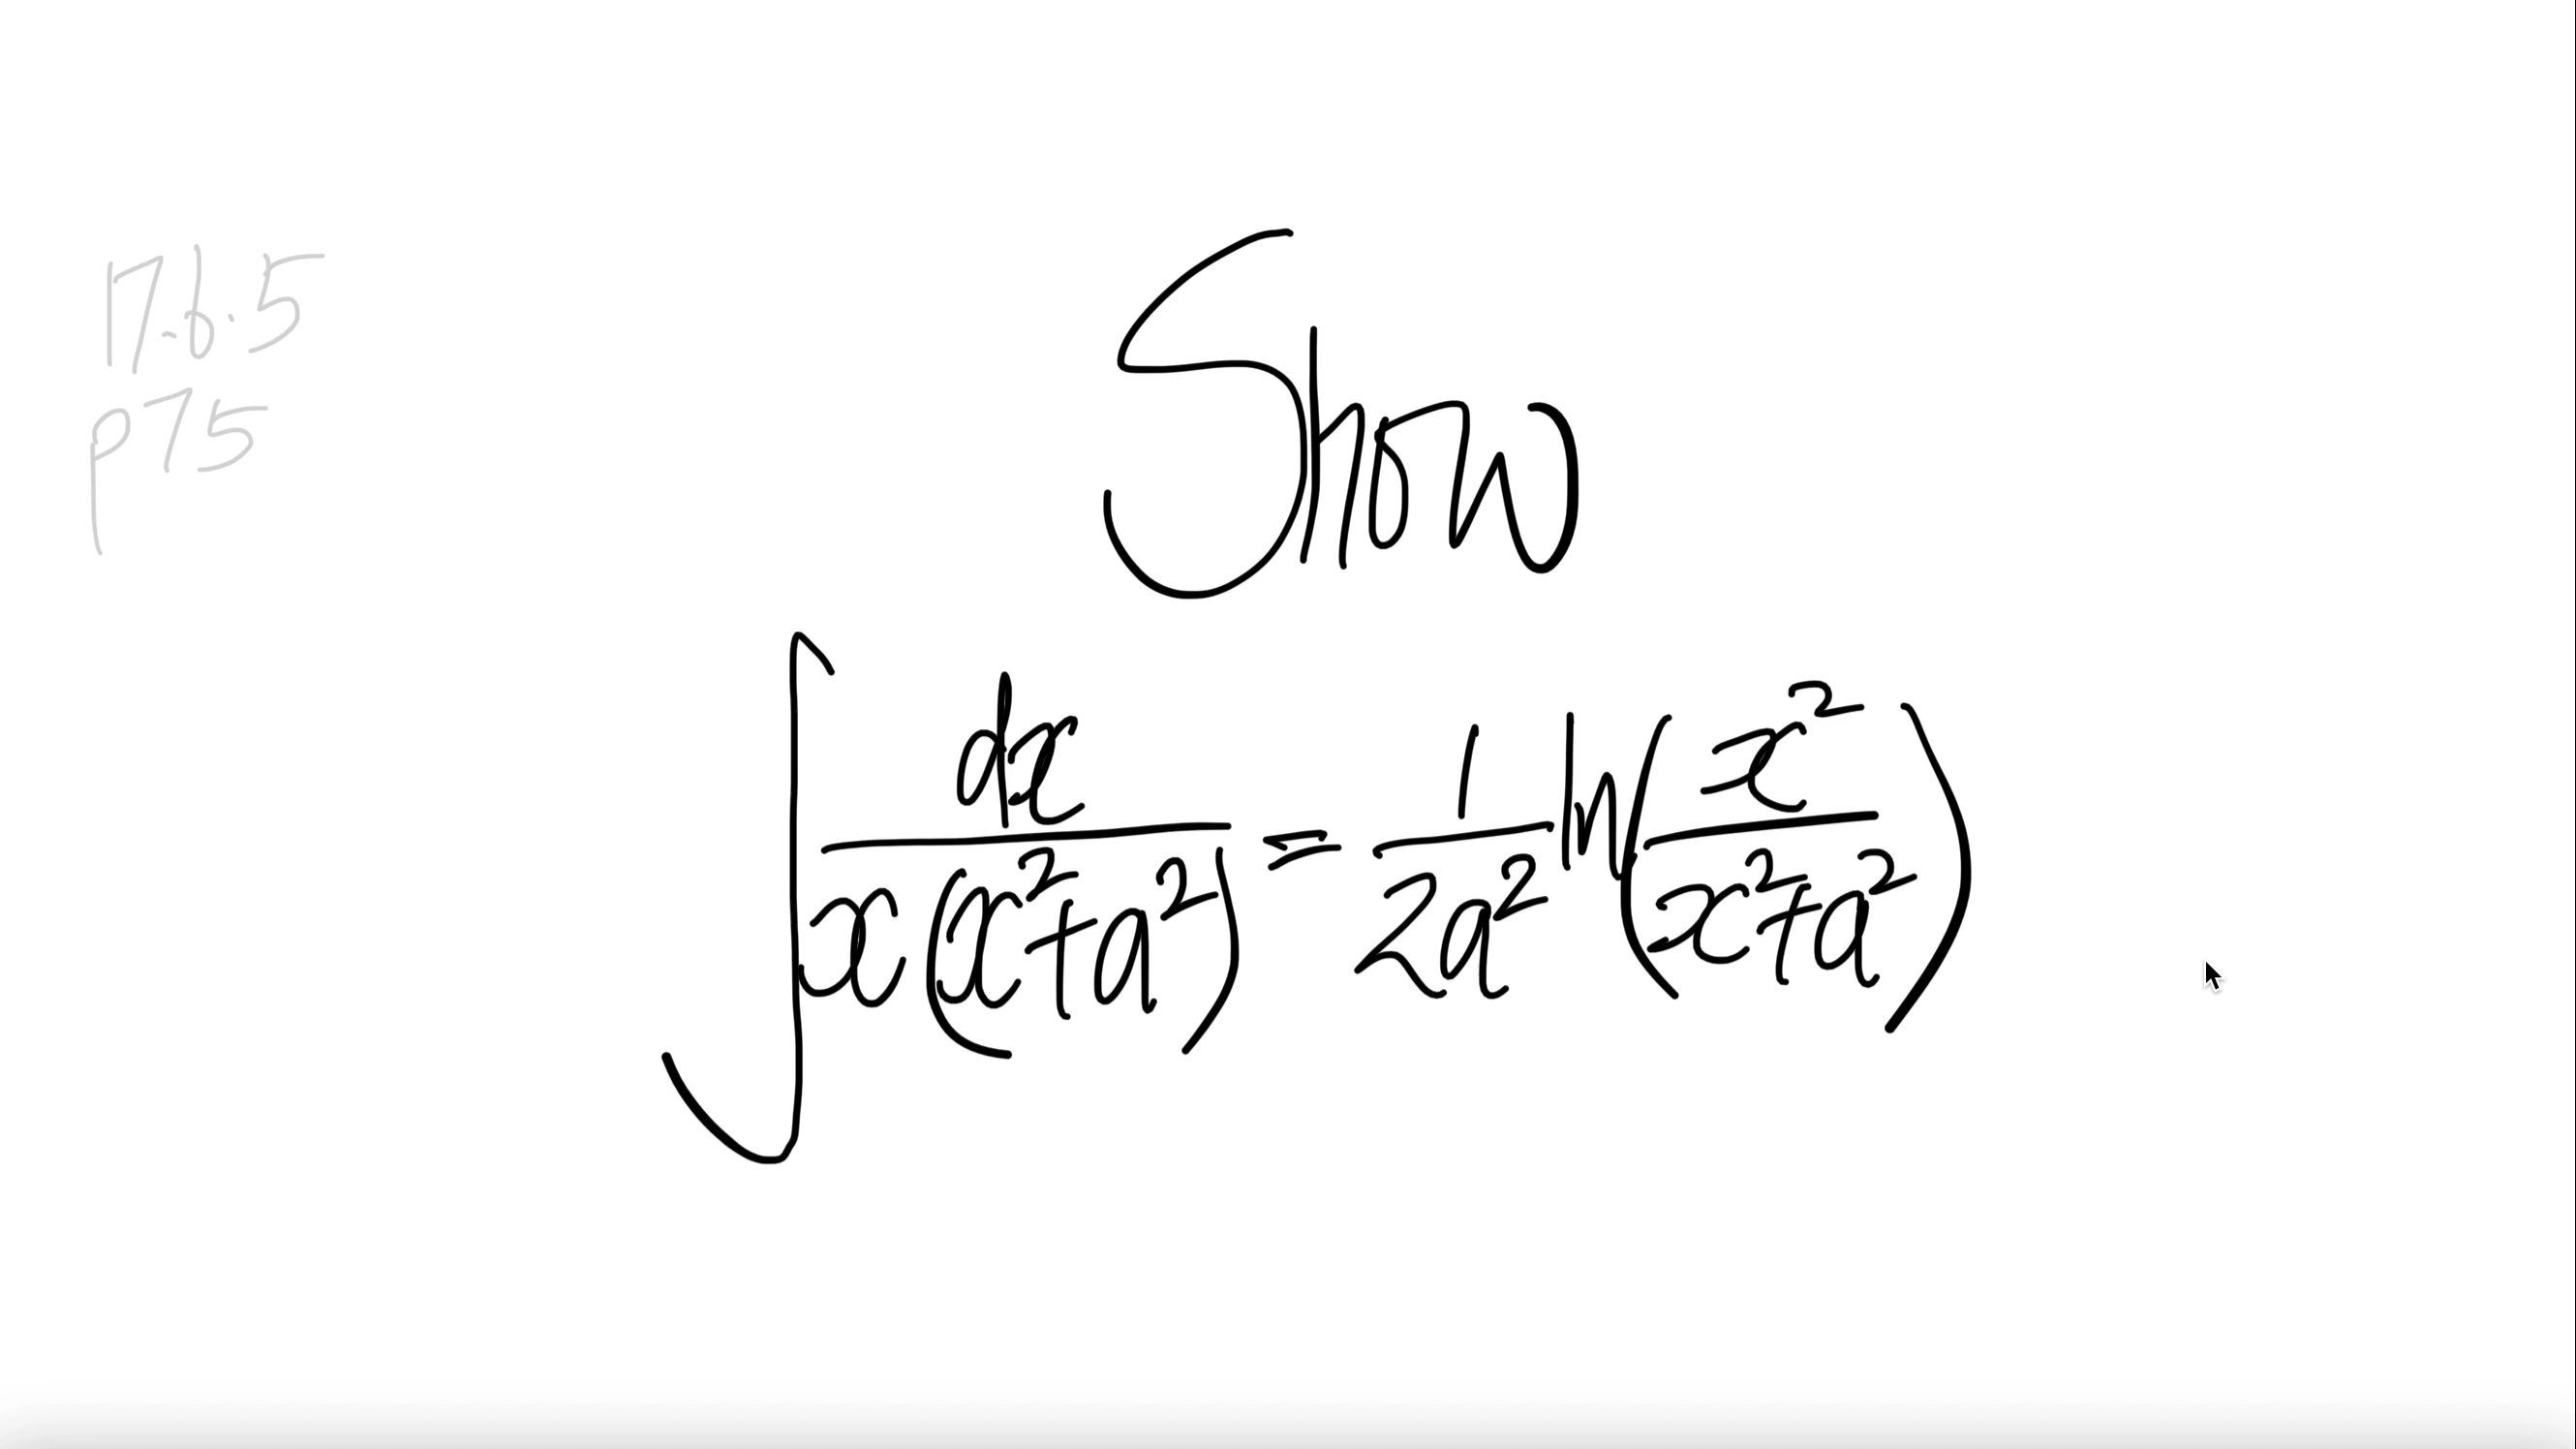 17.6.5
p75
Show
∫ dx / x(x²+a²) = 1/2a² ln(x²/x²+a²)